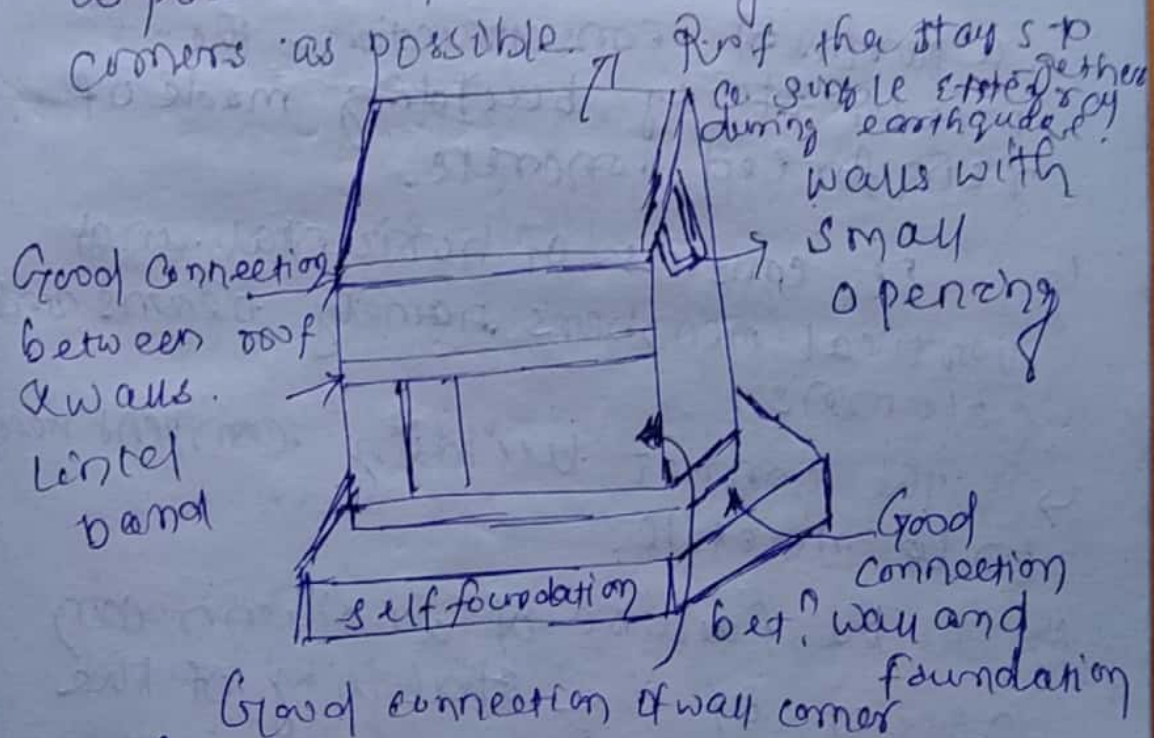 corners as possible.
Roof tha stays to
gether
as single integray
during earthqudae!
walls with
small
opening
Good Connection
between roof
& walls.
Lintel
band
self foundation
Good
connection
betn. wall and
foundation
Good connection of wall corner